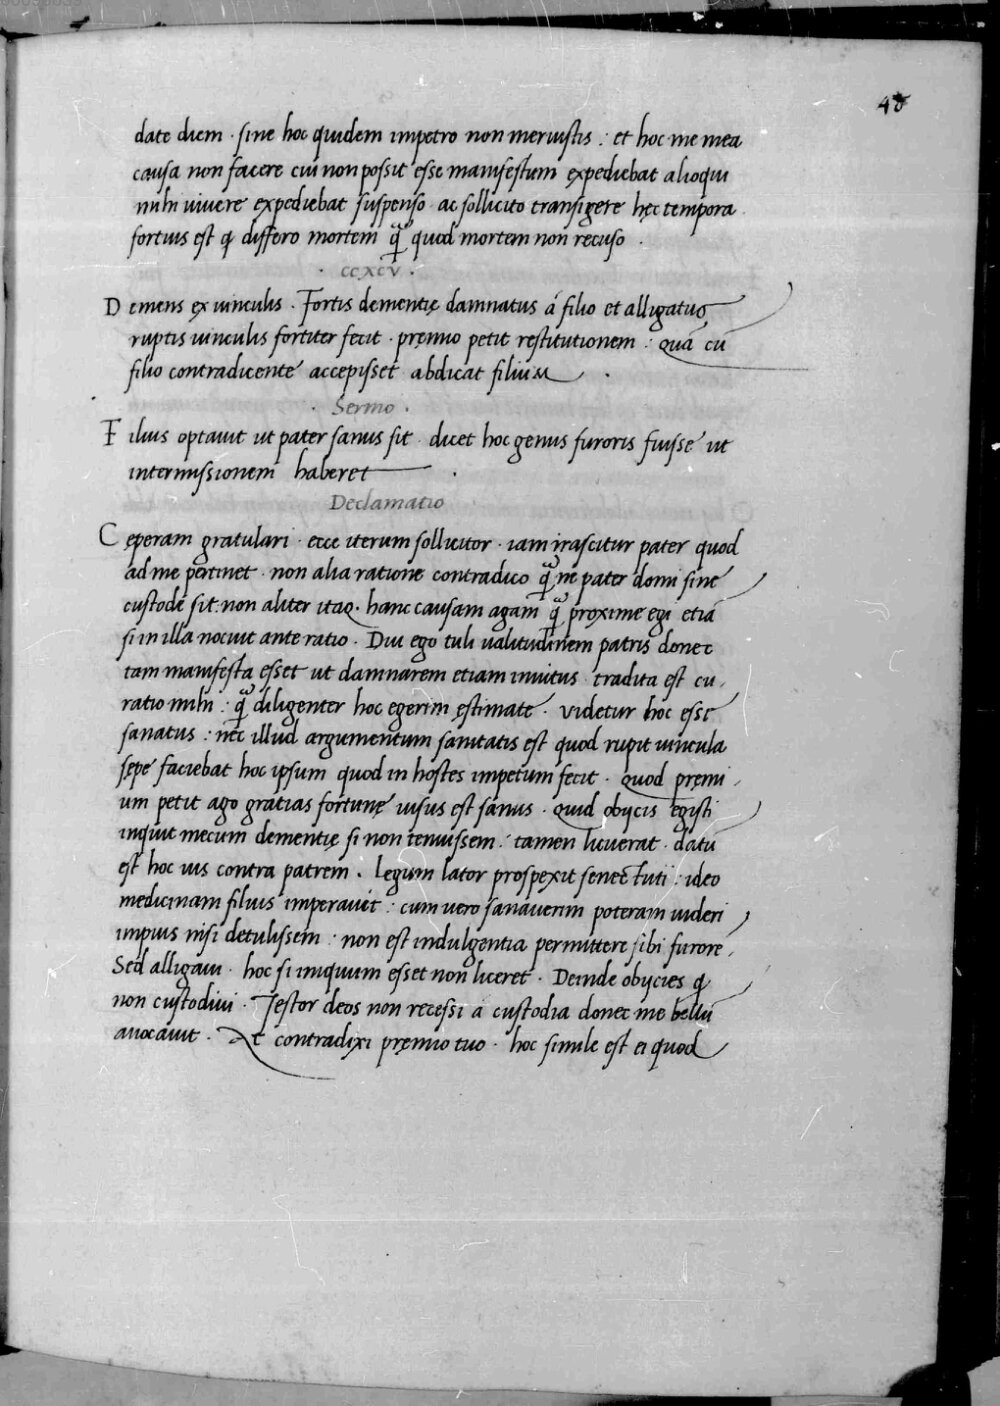 48
date diem · sine hoc quidem impetro non meruistis : et hoc me mea
causa non facere cui non possit esse manifestum expediebat alioqui
mihi vivere expediebat suspenso ac sollicito transigere hęc tempora ·
fortius est ꝙ differo mortem q̃ quod mortem non recuso ·
· ccxcv ·
Demens ex vinculis · Fortis dementię damnatus á filio et alligatus
ruptis vinculis fortiter fecit · pręmio petit restitutionem : quã cũ
filio contradicente accepisset abdicat filium ·
· Sermo ·
Filius optavit ut pater sanus sit · dicet hoc genus furoris fuisse ut
intermissionem haberet ·
Declamatio
Cęperam gratulari · ecce iterum sollicitor · iam irascitur pater quod
ad me pertinet · non alia ratione contradico q̃ ne pater domi sine
custode sit : non aliter itaq · hanc causam agam q̃ proxime egi etiã
si in illa nocuit ante ratio · Diu ego tuli valitudinem patris donec
tam manifesta esset ut damnarem etiam invitus · tradita est cu
ratio mihi : q̃ diligenter hoc egerim ęstimate · videtur hoc esse
sanatus : nec illud argumentum sanitatis est quod rupit vincula
sępe faciebat hoc ipsum quod in hostes impetum fecit · quod pręmi
um petit ago gratias fortunę visus est sanus · quid obijcis egisti
inquit mecum dementię si non tenuissem : tamen licuerat · datũ
est hoc ius contra patrem · legum lator prospexit senectuti : ideo
medicinam filius imperavit : cum vero sanaverim poteram videri
impius nisi detulissem : non est indulgentia permittere sibi furorē
Sed alligavi · hoc si iniquum esset non liceret · Deinde obijcies ꝙ
non custodivi · Testor deos non recessi a custodia donec me bellũ
avocavit · At contradixi pręmio tuo · hoc simile est ei quod